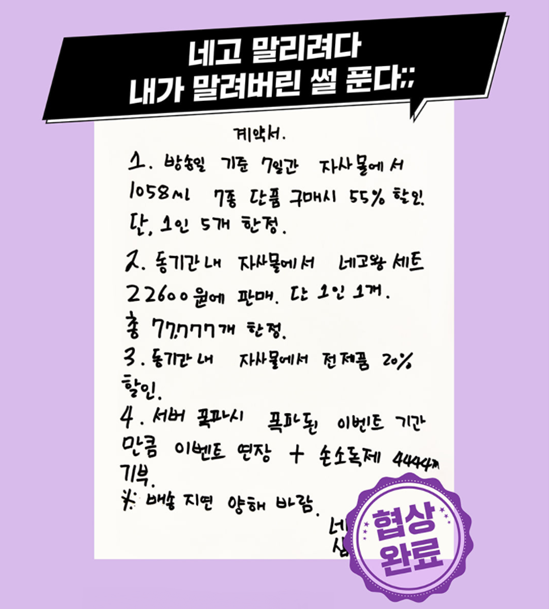 네고 말리려다
내가 말려버린 썰 푼다;;
계약서.
1. 방송일 기준 7일간 자사몰에서
1058ml 7종 단품 구매시 55% 할인.
단, 1인 5개 한정.
2. 동기간 내 자사몰에서 네고왕 세트
22600원에 판매. 단 1인 1개.
총 77,777개 한정.
3. 동기간 내 자사몰에서 전제품 20%
할인.
4. 서버 폭파시 폭파된 이벤트 기간
만큼 이벤트 연장 + 손소독제 4444개
기부.
※ 배송지연 양해 바람.
협상
완료